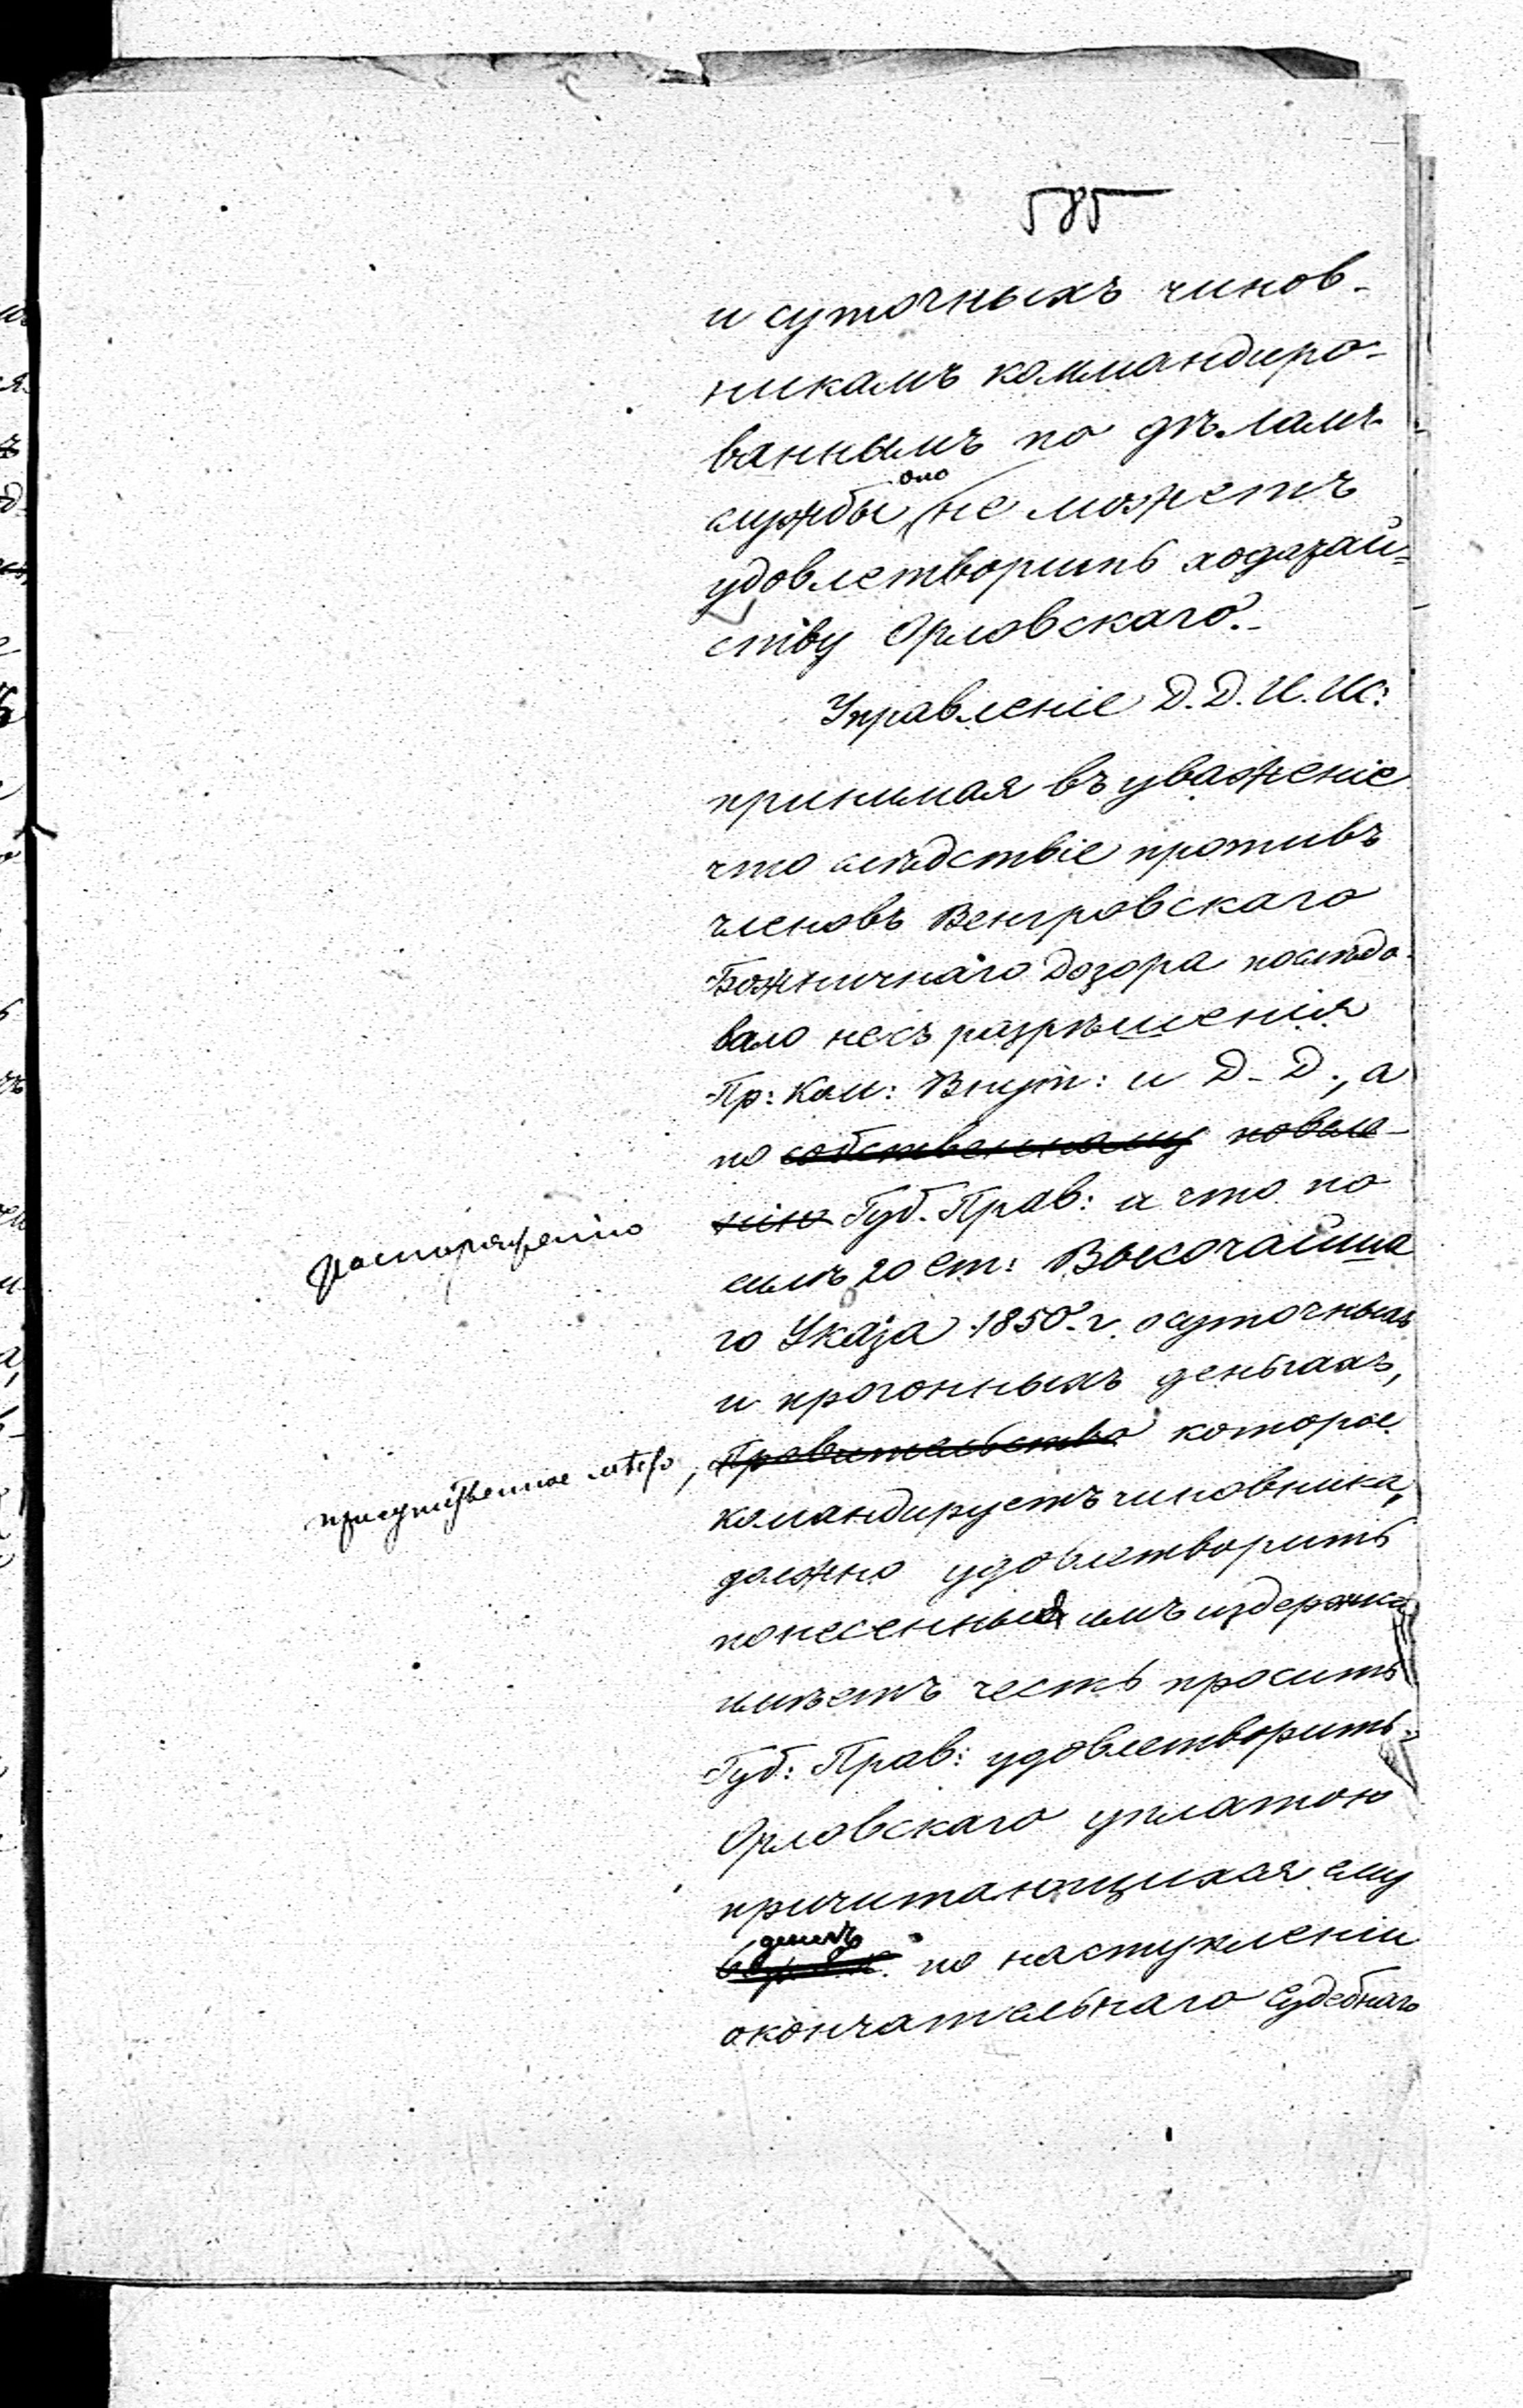 585
и суточныхъ чинов-
никамъ коммандиро-
ваннымъ по дѣламъ
оно
службы не можетъ
удовлетворить ходатай-
ству Орловскаго.-
Управленіе Д. Д. И. И.:
принимая въ уваженіе
что слѣдствіе противъ
членовъ Венгровскаго
Божничнаго Дозора послѣдо-
вало несъ разрѣшенія
Пр: Ком: Внут: и Д. Д., а
по собственному повеле-
распоряженію
нію Губ. Прав: и что по
силѣ 20 ст: Высочайша
го Указа 1850 г. о суточныхъ
и прогонныхъ деньгахъ,
присутственное мѣсто,
Правительство которое
командируетъ чиновника,
должно удовлетворить
понесенныя имъ издержки
имѣетъ честь просить
Губ: Прав: удовлетворить
Орловскаго уплатою
причитающихся ему
денегъ
по наступленіи
окончательнаго Судебнаго